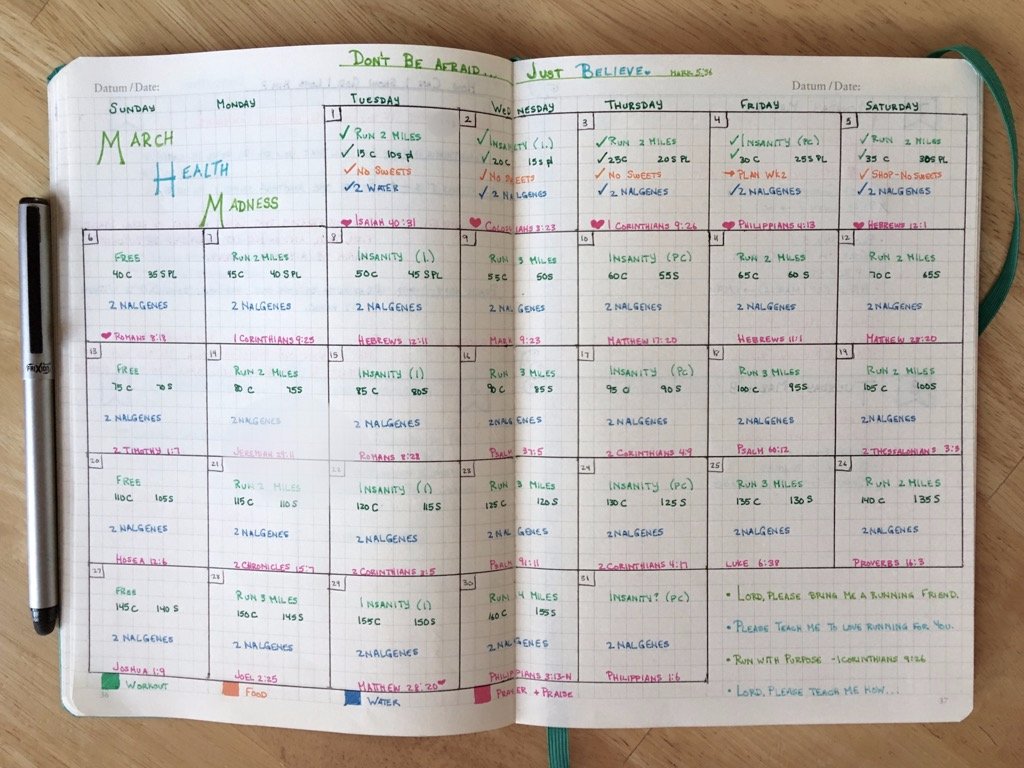 DON'T BE AFRAID... JUST BELIEVE. MARK 5:36
Datum / Date: Datum / Date:
SUNDAY MONDAY TUESDAY WEDNESDAY THURSDAY FRIDAY SATURDAY
MARCH
HEALTH
MADNESS
1
RUN 2 MILES
15 C 10s pl
NO SWEETS
2 WATER
ISAIAH 40:31
2
INSANITY (1.)
20C 15s pl
NO SWEETS
2 NALGENES
3:23
3
RUN 2 MILES
25C 20S PL
NO SWEETS
2 NALGENES
1 CORINTHIANS 9:26
4
INSANITY (PC)
30 C 25S PL
PLAN WK2
2 NALGENES
PHILIPPIANS 4:13
5
RUN 2 MILES
35 C 30S PL
SHOP-NO SWEETS
2 NALGENES
HEBREWS 12:1
6
FREE
40C 35 S PL
2 NALGENES
ROMANS 8:18
7
RUN 2 MILES
45C 40 S PL
2 NALGENES
1 CORINTHIANS 9:25
8
INSANITY (1.)
50C 45 S PL
2 NALGENES
HEBREWS 12:11
9
RUN 3 MILES
55C 50S
2 NALGENES
MARK 9:23
10
INSANITY (PC)
60C 55S
2 NALGENES
MATTHEW 17:20
11
RUN 2 MILES
65C 60 S
2 NALGENES
HEBREWS 11:1
12
RUN 2 MILES
70C 65S
2 NALGENES
MATHEW 28:20
13
FREE
75C 70S
2 NALGENES
2 TIMOTHY 1:7
14
RUN 2 MILES
80 C 75S
2 NALGENES
JEREMIAH 29:11
15
INSANITY (1)
85 C 80S
2 NALGENES
ROMANS 8:28
16
RUN 3 MILES
90C 85S
2 NALGENES
PSALM 37:5
17
INSANITY (PC)
95 C 90S
2 NALGENES
2 CORINTHIANS 4:9
18
RUN 3 MILES
100C 95S
2 NALGENES
PSALM 60:12
19
RUN 2 MILES
105 C 100S
2 NALGENES
2 THESSALONIANS 3:5
20
FREE
110C 105S
2 NALGENES
HOSEA 12:6
21
RUN 2 MILES
115C 110S
2 NALGENES
2 CHRONICLES 15:7
22
INSANITY (1)
120C 115S
2 NALGENES
2 CORINTHIANS 3:5
23
RUN 3 MILES
125C 120S
2 NALGENES
PSALM 91:11
24
INSANITY (PC)
130C 125 S
2 NALGENES
2 CORINTHIANS 4:17
25
RUN 3 MILES
135C 130 S
2 NALGENES
LUKE 6:38
26
RUN 2 MILES
140C 135S
2 NALGENES
PROVERBS 16:3
27
FREE
145C 140 S
2 NALGENES
JOSHUA 1:9
28
RUN 3 MILES
150C 145S
2 NALGENES
JOEL 2:25
29
INSANITY (1)
155C 150S
2 NALGENES
MATTHEW 28:20
30
RUN 4 MILES
160C 155S
2 NALGENES
PHILIPPIANS 3:13-14
31
INSANITY? (PC)
2 NALGENES
PHILIPPIANS 1:6
• LORD, PLEASE BRING ME A RUNNING FRIEND.
• PLEASE TEACH ME TO LOVE RUNNING FOR YOU.
• RUN WITH PURPOSE -1 CORINTHIANS 9:26
• LORD, PLEASE TEACH ME HOW...
36 WORKOUT FOOD WATER PRAYER + PRAISE 37
FRIXION